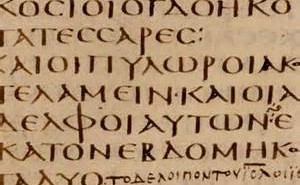 ΚΟϹΙΟΙΟΓΔΟΗΚΟ
ΤΑΤΕϹϹΑΡΕϹ:
ΚΑΙΟΙΠΥΛΩΡΟΙΑΚ
ΤΕΛΑΜΕΙΝ·ΚΑΙΟΙΑ
ΔΕΛΦΟΙΑΥΤΩΝ·Ε
ΚΑΤΟΝΕΒΔΟΜΗΚ
ΤΑΔΥΟ